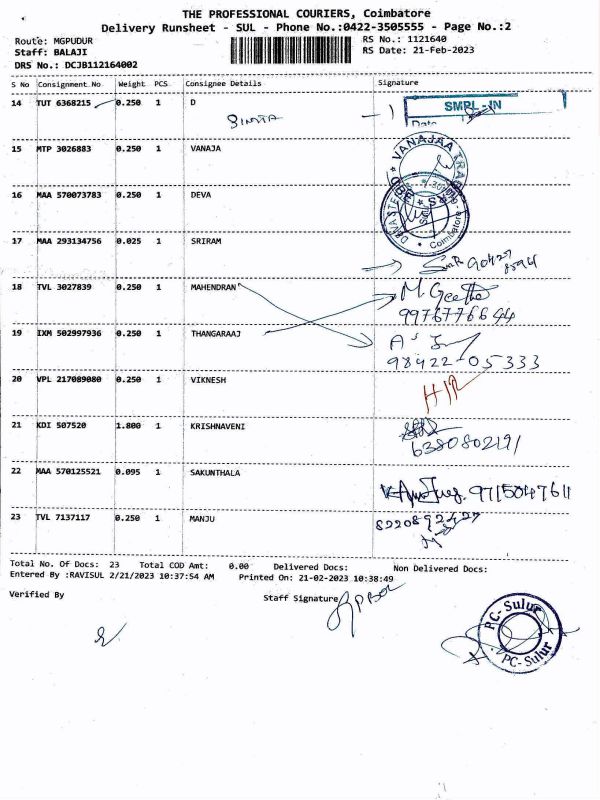 THE PROFESSIONAL COURIERS, Coimbatore
Delivery Runsheet - SUL - Phone No.:0422-3505555 - Page No.:2
Route: MGPUDUR RS No.: 1121640
Staff: BALAJI RS Date: 21-Feb-2023
DRS No.: DCJB112164002
S No Consignment No Weight PCS Consignee Details Signature
14 TUT 6368215 0.250 1 D SMPL-IN
Date
15 MTP 3026883 0.250 1 VANAJA
VANAJAA
16 MAA 570073783 0.250 1 DEVA
Coimbatore
17 MAA 293134756 0.025 1 SRIRAM
18 TVL 3027839 0.250 1 MAHENDRAN M Geetha
9976776644
19 IXM 502997936 0.250 1 THANGARAAJ
98422-05333
20 VPL 217089080 0.250 1 VIKNESH
21 KDI 507520 1.800 1 KRISHNAVENI
6380802191
22 MAA 570125521 0.095 1 SAKUNTHALA
9715047611
23 TVL 7137117 0.250 1 MANJU
Total No. Of Docs: 23 Total COD Amt: 0.00 Delivered Docs: Non Delivered Docs:
Entered By :RAVISUL 2/21/2023 10:37:54 AM Printed On: 21-02-2023 10:38:49
Verified By Staff Signature
PC-Sulur
PC-Sulur